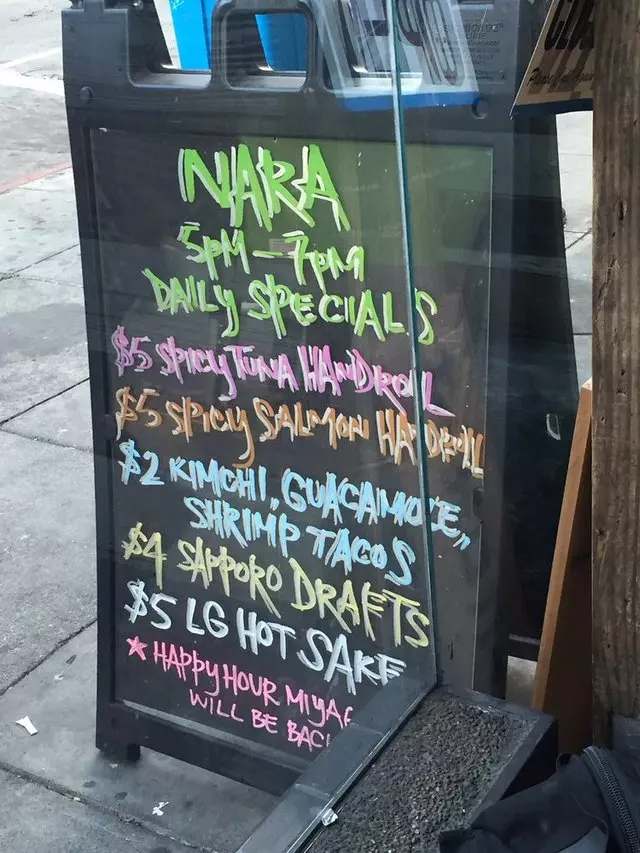 NARA
5PM - 7PM
DAILY SPECIALS
$5 SPICY TUNA HANDROLL
$5 SPICY SALMON HANDROLL
$2 KIMCHI, GUACAMOLE,
SHRIMP TACOS
$4 SAPPORO DRAFTS
$5 LG HOT SAKE
★ HAPPY HOUR
WILL BE BACK